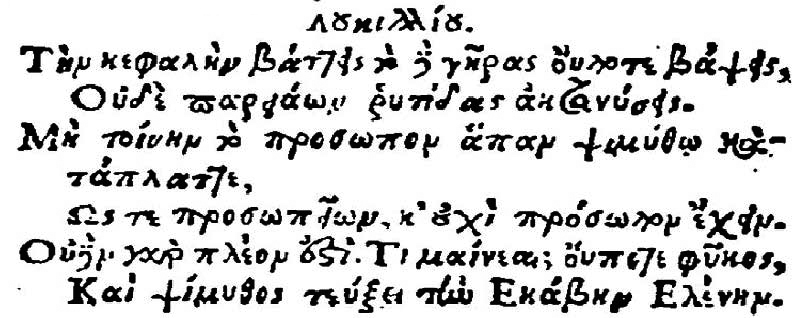 Λουκιλλίου.
Τὴν κεφαλὴν βάπτεις τὸ δὲ γῆρας οὔποτε βάψεις,
Οὐδὲ παρειάων ῥυτίδας ἐκτανύσεις.
Μὴ τοίνυν τὸ πρόσωπον ἅπαν ψιμύθῳ κα-
τάπλαττε,
Ὥς τε προσωπεῖον, κ' οὐχὶ πρόσωπον ἔχειν.
Οὐδὲν γὰρ πλέον ἐστί. Τί μαίνεαι; οὔποτε φῦκος,
Καὶ ψίμυθος τεύξει τὴν Ἑκάβην Ἑλένην.